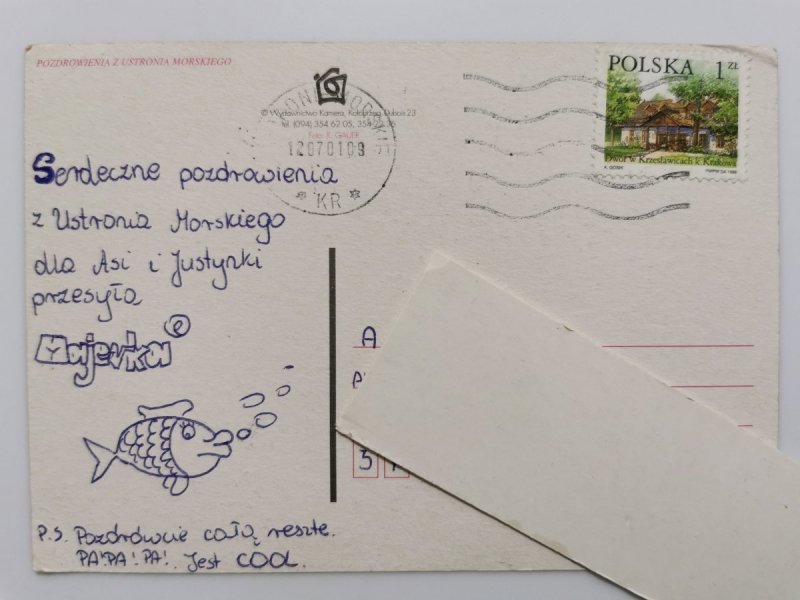 POZDROWIENIA Z USTRONIA MORSKIEGO
© Wydawnictwo Kamera, Kołobrzeg, Dubois 23
tel. (094) 354 62 05, 35
Foto: K. GAUER
12070109
* KR *
POLSKA 1 ZŁ
Dwór w Krzesławicach k. Krakowa
Serdeczne pozdrowienia
z Ustronia Morskiego
dla Asi i Justynki
przesyła
Majevka
A
P.S. Pozdrówcie całą resztę.
PA! PA! PA! Jest COOL.